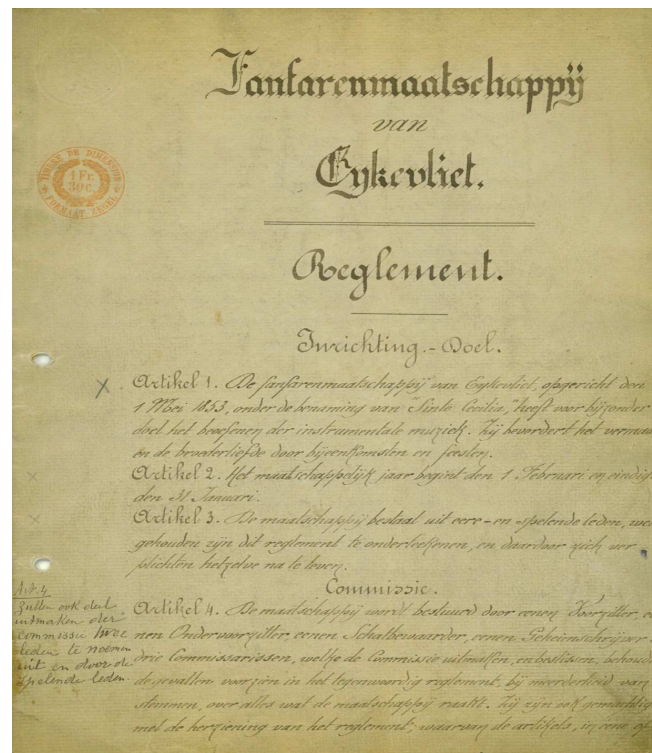 Fanfarenmaatschappij
van
Eykevliet.
TIMBRE DE DIMENSION
1 Fr.
30 c.
FORMAAT ZEGEL
Reglement.
Inrichting.- Doel.
X Artikel 1. De fanfarenmaatschappij van Eykevliet, opgericht den
1 Mei 1853, onder de benaming van "Sinte Cecilia," heeft voor bijzonder
doel het beoefenen der instrumentale muziek. Zij bevordert het vermaak
en de broederliefde door bijeenkomsten en feesten.
Artikel 2. Het maatschappelijk jaar begint den 1 Februari en eindigt
den 31 Januari.
Artikel 3. De maatschappij bestaat uit eere- en spelende leden, wel
gehouden zijn dit reglement te onderteekenen, en daardoor zich ver
plichten hetzelve na te leven.
Commissie.
Art. 4
Zullen ook deel
uitmaken der
commissie twee
leden te noemen
uit en door de
spelende leden.
Artikel 4. De maatschappij wordt bestuurd door eenen Voorzitter, ee
nen Ondervoorzitter, eenen Schatbewaarder, eenen Geheimschrijver
drie Commissarissen, welke de Commissie uitmaken, en beslissen, behoud
de gevallen voorzien in het tegenwoordig reglement, bij meerderheid van
stemmen, over alles wat de maatschappij raakt. Zij zijn ook gemachtig
met de herziening van het reglement, waarvan de artikels, in eene of